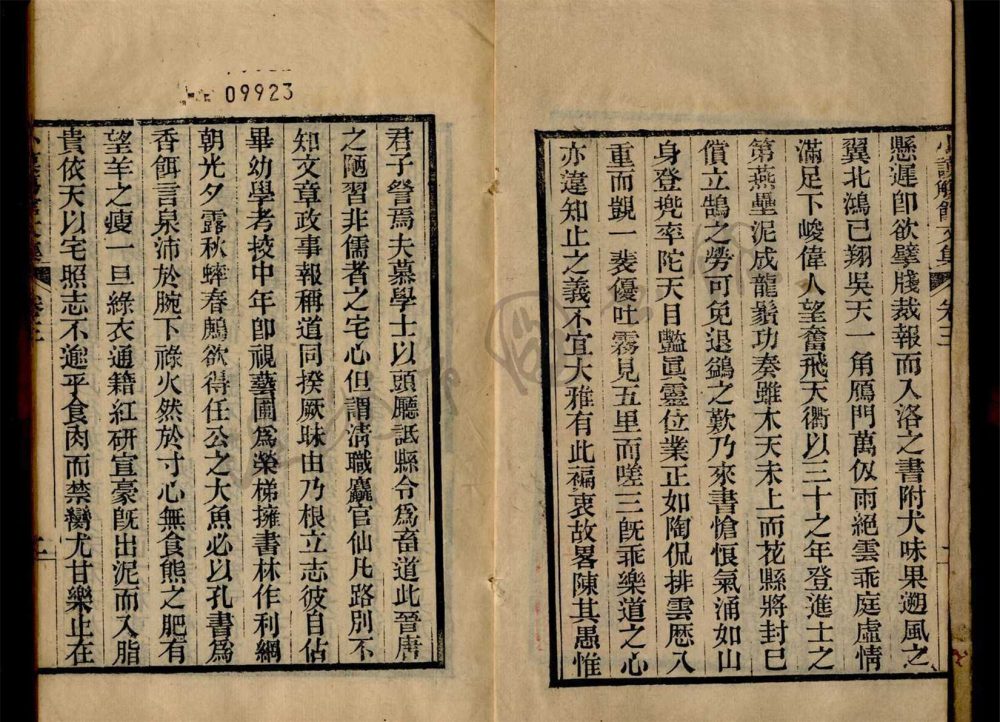 懸遲卽欲擘牋裁報而入洛之書附犬味果遡風之
翼北鴻已翔吳天一角鴈門萬仭雨絕雲乖庭虛情
滿足下峻偉人望奮飛天衢以三十之年登進士之
第燕壘泥成龍鬚功奏雖木天未上而花縣將封巳
償立鵠之勞可免退鷁之歎乃來書愴悢氣涌如山
身登兠率陀天目豔眞靈位業正如陶侃排雲歴八
重而覬一裴優吐霧見五里而嗟三旣乖樂道之心
亦違知止之義不宜大雅有此褊衷故畧陳其愚惟
09923
君子詧焉夫慕學士以頭廳詆縣令爲畜道此晉唐
之陋習非儒者之宅心但謂淸職麤官仙凡路別不
知文章政事報稱道同揆厥昧由乃根立志彼自佔
畢幼學考挍中年卽視藝圃爲榮梯擁書林作利網
朝光夕露秋蟀春鷓欲得任公之大魚必以孔書爲
香餌言泉沛於腕下祿火然於寸心無食熊之肥有
望羊之瘦一旦綠衣通籍紅研宣豪旣出泥而入脂
貴依天以宅照志不邇乎食肉而禁臠尤甘樂止在
卷三